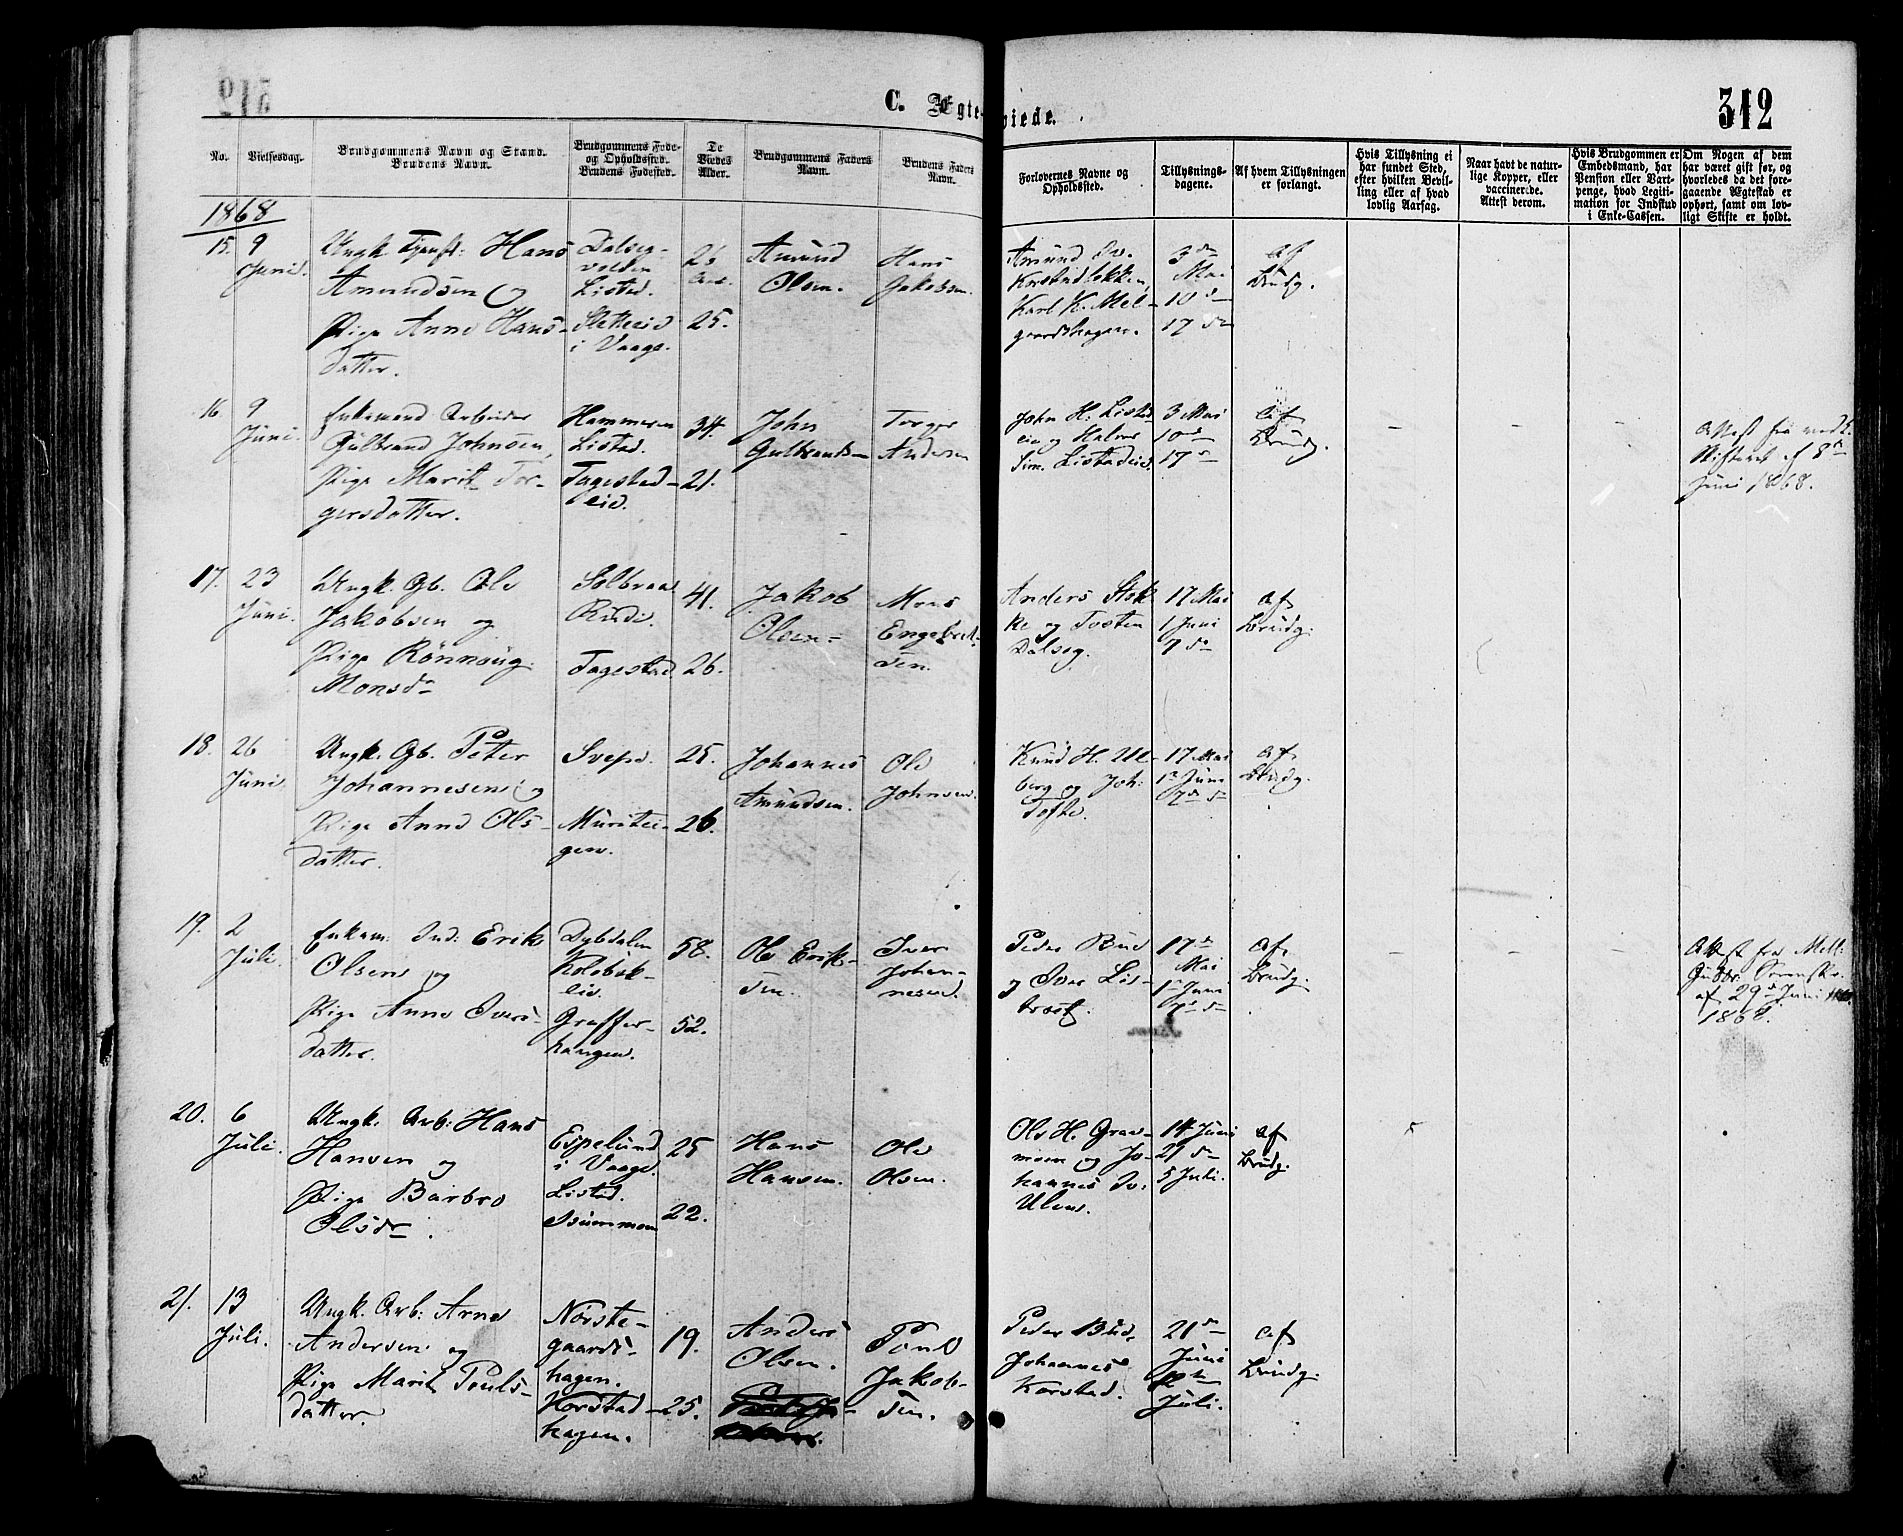 C. Ægteviede.
312
No.
Vielsesdag.
Brudgommens Navn og Stand.
Brudens Navn.
Brudgommens Føde-
og Opholdssted.
Brudens Fødested.
De
Viedes
Alder.
Brudgommens Faders
Navn.
Brudens Faders
Navn.
Forlovernes Navne og
Opholdssted.
Tillysnings-
dagene.
Af hvem Tillysningen
er forlangt.
Hvis Tillysning ei
har fundet Sted,
efter hvilken Bevil-
ling eller af hvad
lovlig Aarsag.
Naar havt de natur-
lige Kopper, eller
vaccinerede.
Attest derom.
Hvis Brudgommen er
Embedsmand, har
Pension eller Vart-
penge, hvad Legiti-
mation for Indskud
i Enke-Cassen.
Om Nogen af dem
har været gift før, og
hvorledes da det fore-
gaaende Ægteskab er
ophørt, samt om lov-
ligt Skifte er holdt.
1868
15.
9
Juni.
Ungk. Tjenst: Hans
Amundsen og
Pige Anne Hans-
datter.
Dalseg-
volden
Listad.
Sletteeid
i Vaage.
26
25.
Amund
Olsen.
Hans
Jakobsen.
Amund
Karl K. Mel-
gaardshagen.
3 dn
Mai
10 dn
17 dn
af
Brudg.
16.
9
Juni.
Enkemand Arbeider
Gulbrand Johnsen,
Pige Marit Tor-
gersdatter.
Hammeren
Listad.
Tagestad-
eid.
34.
21.
John
Gulbrands-
Torger
Andersen
John H. Listad
eie og Halvor
Sim. Listadeie.
3 Mai
10 dn
17 n
af
Brudg.
Attest fra vedk.
Skifteret af 8 dn
Juni 1868.
17.
23
Juni.
Ungk. Gb. Ole
Jakobsen og
Pige Rønnoug
Monsdn
Solbraa
Rudi.
Tagestad
41.
26.
Jakob
Olsen-
Mons
Engebret-
sen.
Anders Stok
ke og Tosten
Dalseg.
17 Mai
1 Juni
7 dn
af
Brudg.
18.
26
Juni
Ungk. Gb. Peter
Johannesen og
Pige Anne Ols-
datter.
Svepe.
Muristei-
gen.
25.
26.
Johannes
Amundsen.
Ole
Johnsen.
Knud H. Ul-
berg og Joh:
Tofte.
17 Mai
1n Juni
7 dn
af
Brudg.
19.
2
Juli.
Enkem: Ind: Erik
Olsen og
Pige Anne Ivers-
datter.
Dybdalen
Graffer-
haugen.
58.
52.
Ole Erik-
sen.
Iver
Johan-
nesen.
Peder Bud
og Iver Lis-
17 dn
Mai
1n Juni
7 dn
af
Brudg.
Attest fra Mell:
Gudbr. Sorenskr.
af 29 dn Juni
1868.
20.
6
Juli.
Ungk. Arb: Hans
Hansen og
Pige Barbro
Olsdn.
Espelund
i Vaage.
Listad.
Isummoen
25
22.
Hans
Hansen.
Ole
Olsen.
Ole H. Grav-
moen og Jo-
hannes Iv:
Ulen.
14 Juni
21 dn
5 Juli.
af
Brudg.
21.
13
Juli.
Ungk. Arb: Arne
Andersen og
Pige Marit Pouls-
datter.
Norste-
gaards-
hagen.
Korstad-
hagen.
19.
25.
Anders
Olsen.
Poul
Jakob-
sen.
Peder Bud,
Johannes
Korstad.
21 dn
Juni
Juli.
af
Brudg.